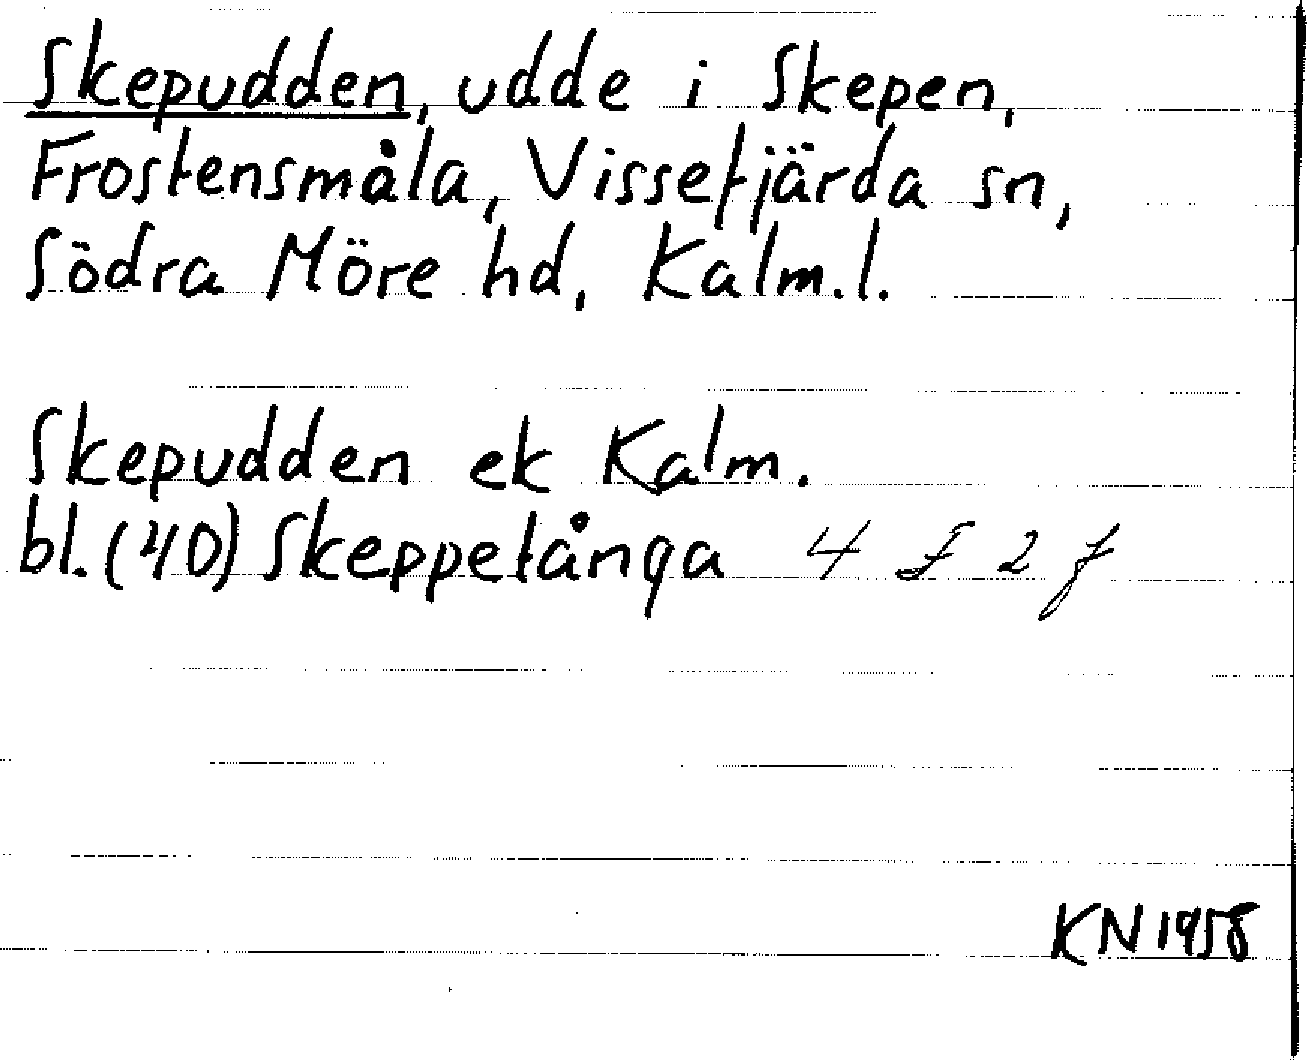 Skepudden, udde i Skepen,
Frostensmåla, Vissefjärda sn,
Södra Möre hd, Kalm.l.
Skepudden ek Kalm.
bl. (40) Skeppetånga 4 F 2 f
KN 1958